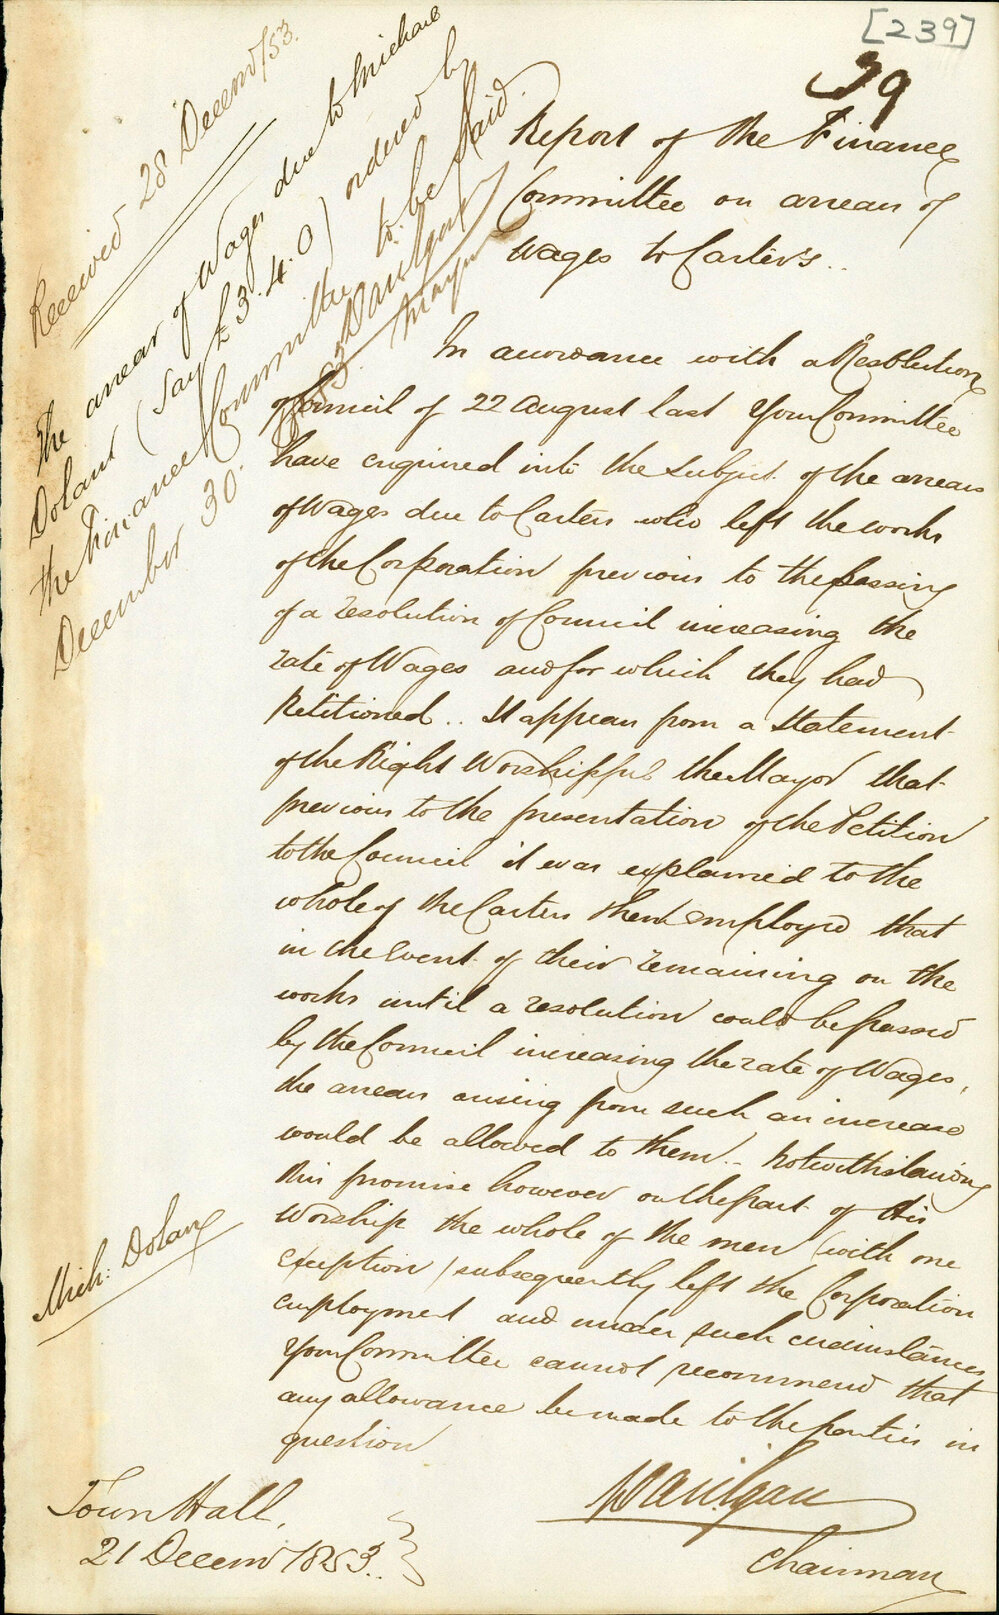 [239]
39
Report of the Finance
Committee on arrears of
Wages to Carter's..
In accordance with a Resolution
of Council of 22 August last Your Committee
have enquired into the subject of the arrears
of Wages due to Carters who left the works
of the Corporation previous to the passing
of a resolution of Council increasing the
rate of Wages and for which they had
Petitioned.. It appears from a Statement
of the Right Worshipful the Mayor that
previous to the presentation of the Petition
to the Council it was explained to the
whole of the Carters then employed that
in the event of their remaining on the
works until a resolution could be passed
by the Council increasing the rate of Wages,
the arrears arising from such an increase
would be allowed to them.. Notwithstanding
this promise however on the part of His
Worship the whole of the men (with one
exception) subsequently left the Corporation
employment and under such circumstances
Your Committee cannot recommend that
any allowance be made to the parties in
question
Chairman
Town Hall,
21 Decemr 1853..
Mich: Dolan
Received 28 Decemr/53.
The arrear of Wages due to Michael
Dolan (say £3.4.0) ordered by
the Finance Committee to be paid
December 30. 1853
Mayor